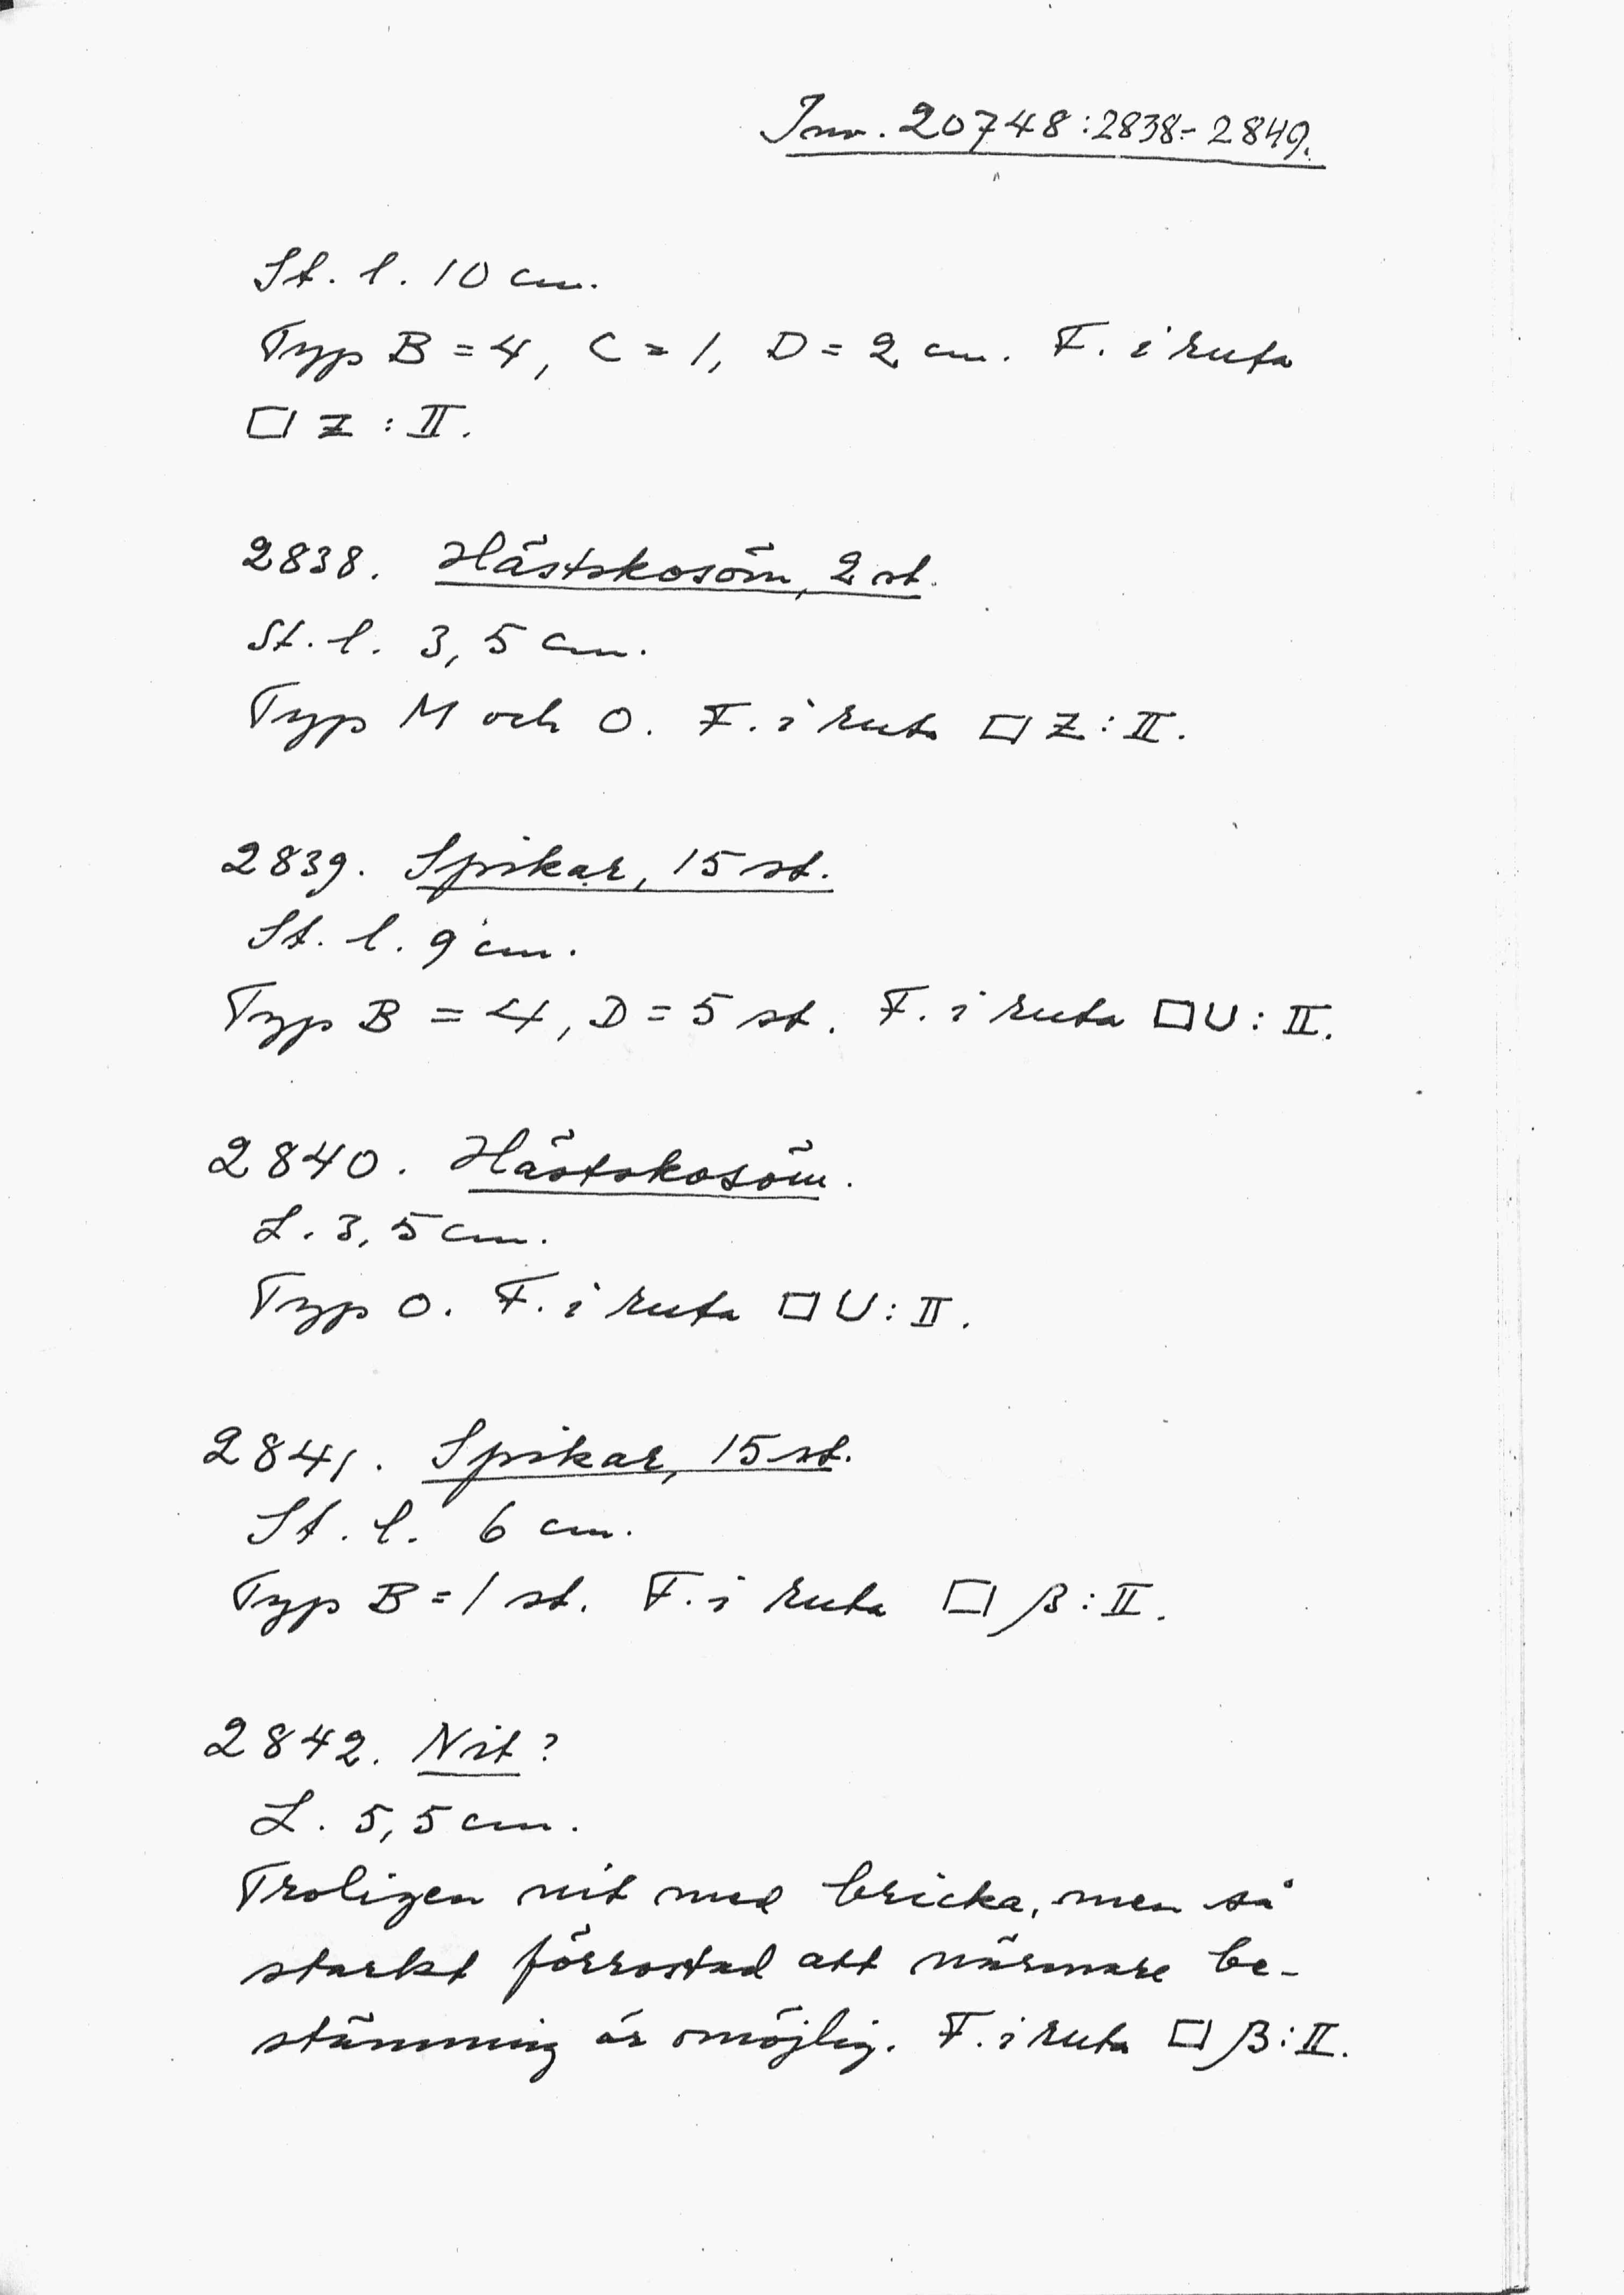 Inv. 20748:2838-2849.
St. l. 10 cm.
Typ B = 4, C = 1, D = 2 cm. F. i ruta
□ Z : II.
2838. Hästskosöm, 2 st.
St. l. 3,5 cm.
Typ M och O. F. i ruta □ Z : II.
2839. Spikar, 15 st.
St. l. 9 cm.
Typ B = 4, D = 5 st. F. i ruta □ U : II.
2840. Hästskosöm.
L. 3,5 cm.
Typ O. F. i ruta □ U : II.
2841. Spikar, 15 st.
St. l. 6 cm.
Typ B = 1 st. F. i ruta □ β : II.
2842. Nit?
L. 5,5 cm.
Troligen nit med bricka, men så
starkt förrostad att närmare be-
stämning är omöjlig. F. i ruta □ β : II.